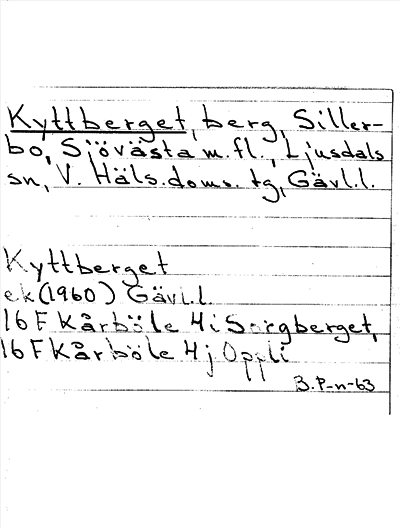 Kyttberget, berg, Siller-
bo, Sjövästa m.fl., Ljusdals
sn, V. Häls.doms. tg, Gävl.l.
Kyttberget
ek(1960) Gävl.l.
16 F Kårböle 4 i Sorgberget,
16 F Kårböle 4 j Oppli
B.P-n-63